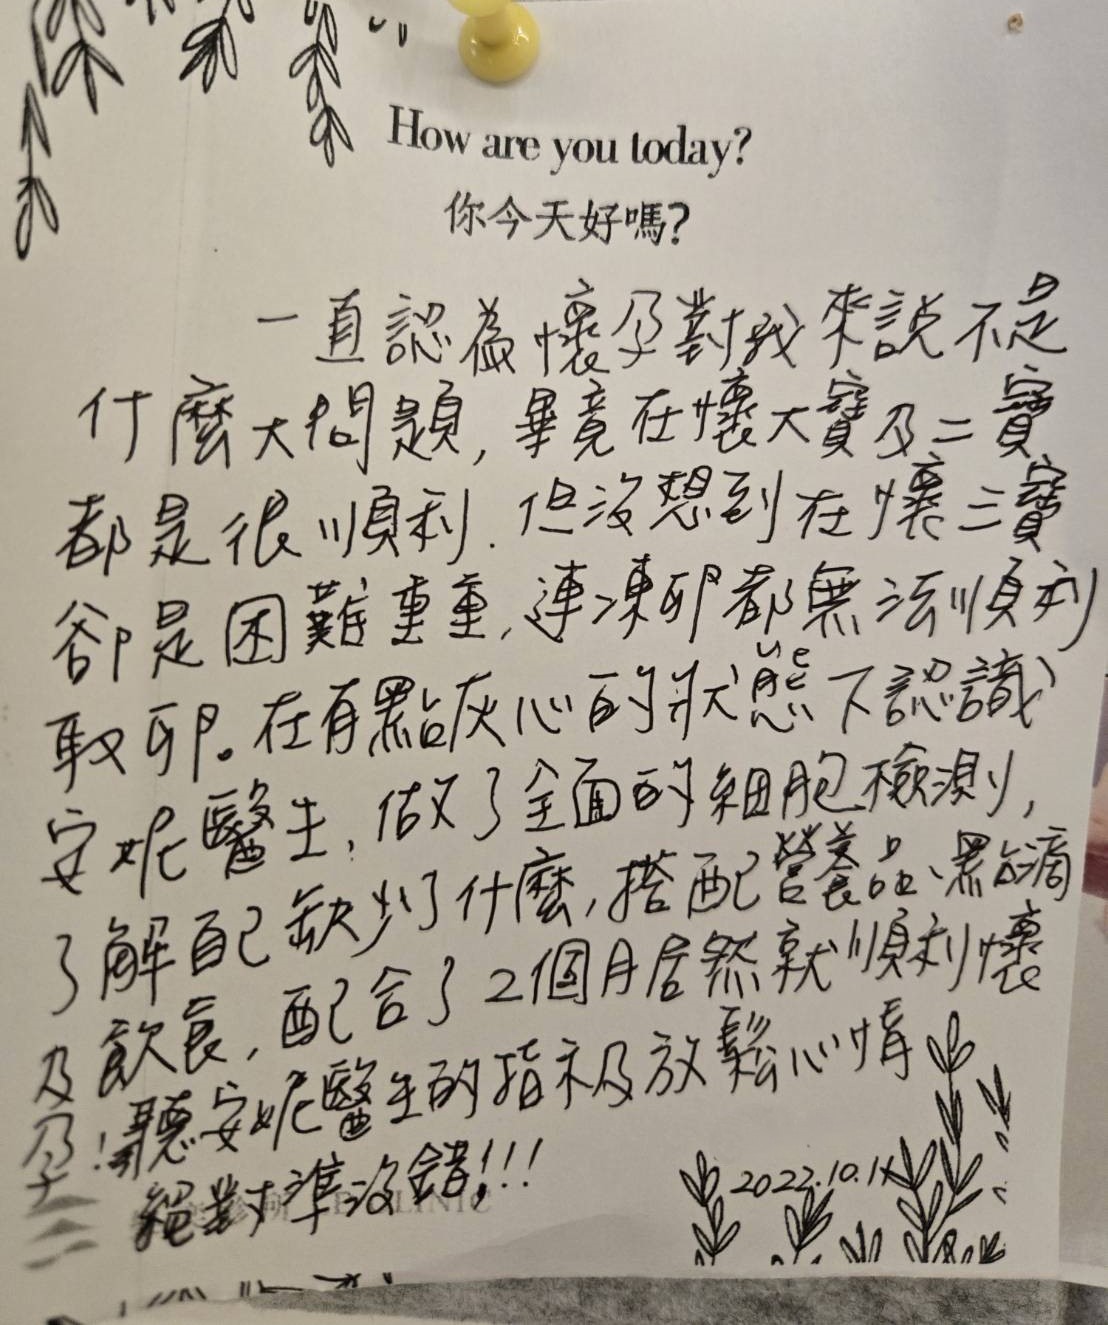 How are you today?
你今天好嗎?
一直認為懷孕對我來說不是
什麼大問題,畢竟在懷大寶及二寶
都是很順利.但沒想到在懷三寶
卻是困難重重,連凍卵都無法順利
取卵。在有點灰心的狀態下認識
安妮醫生,做了全面的細胞檢測,
了解自己缺少了什麼,搭配營養品、點滴
及飲食,配合了2個月居然就順利懷
孕!聽安妮醫生的指示及放鬆心情
絕對準沒錯!!!
2022.10.1
CLINIC